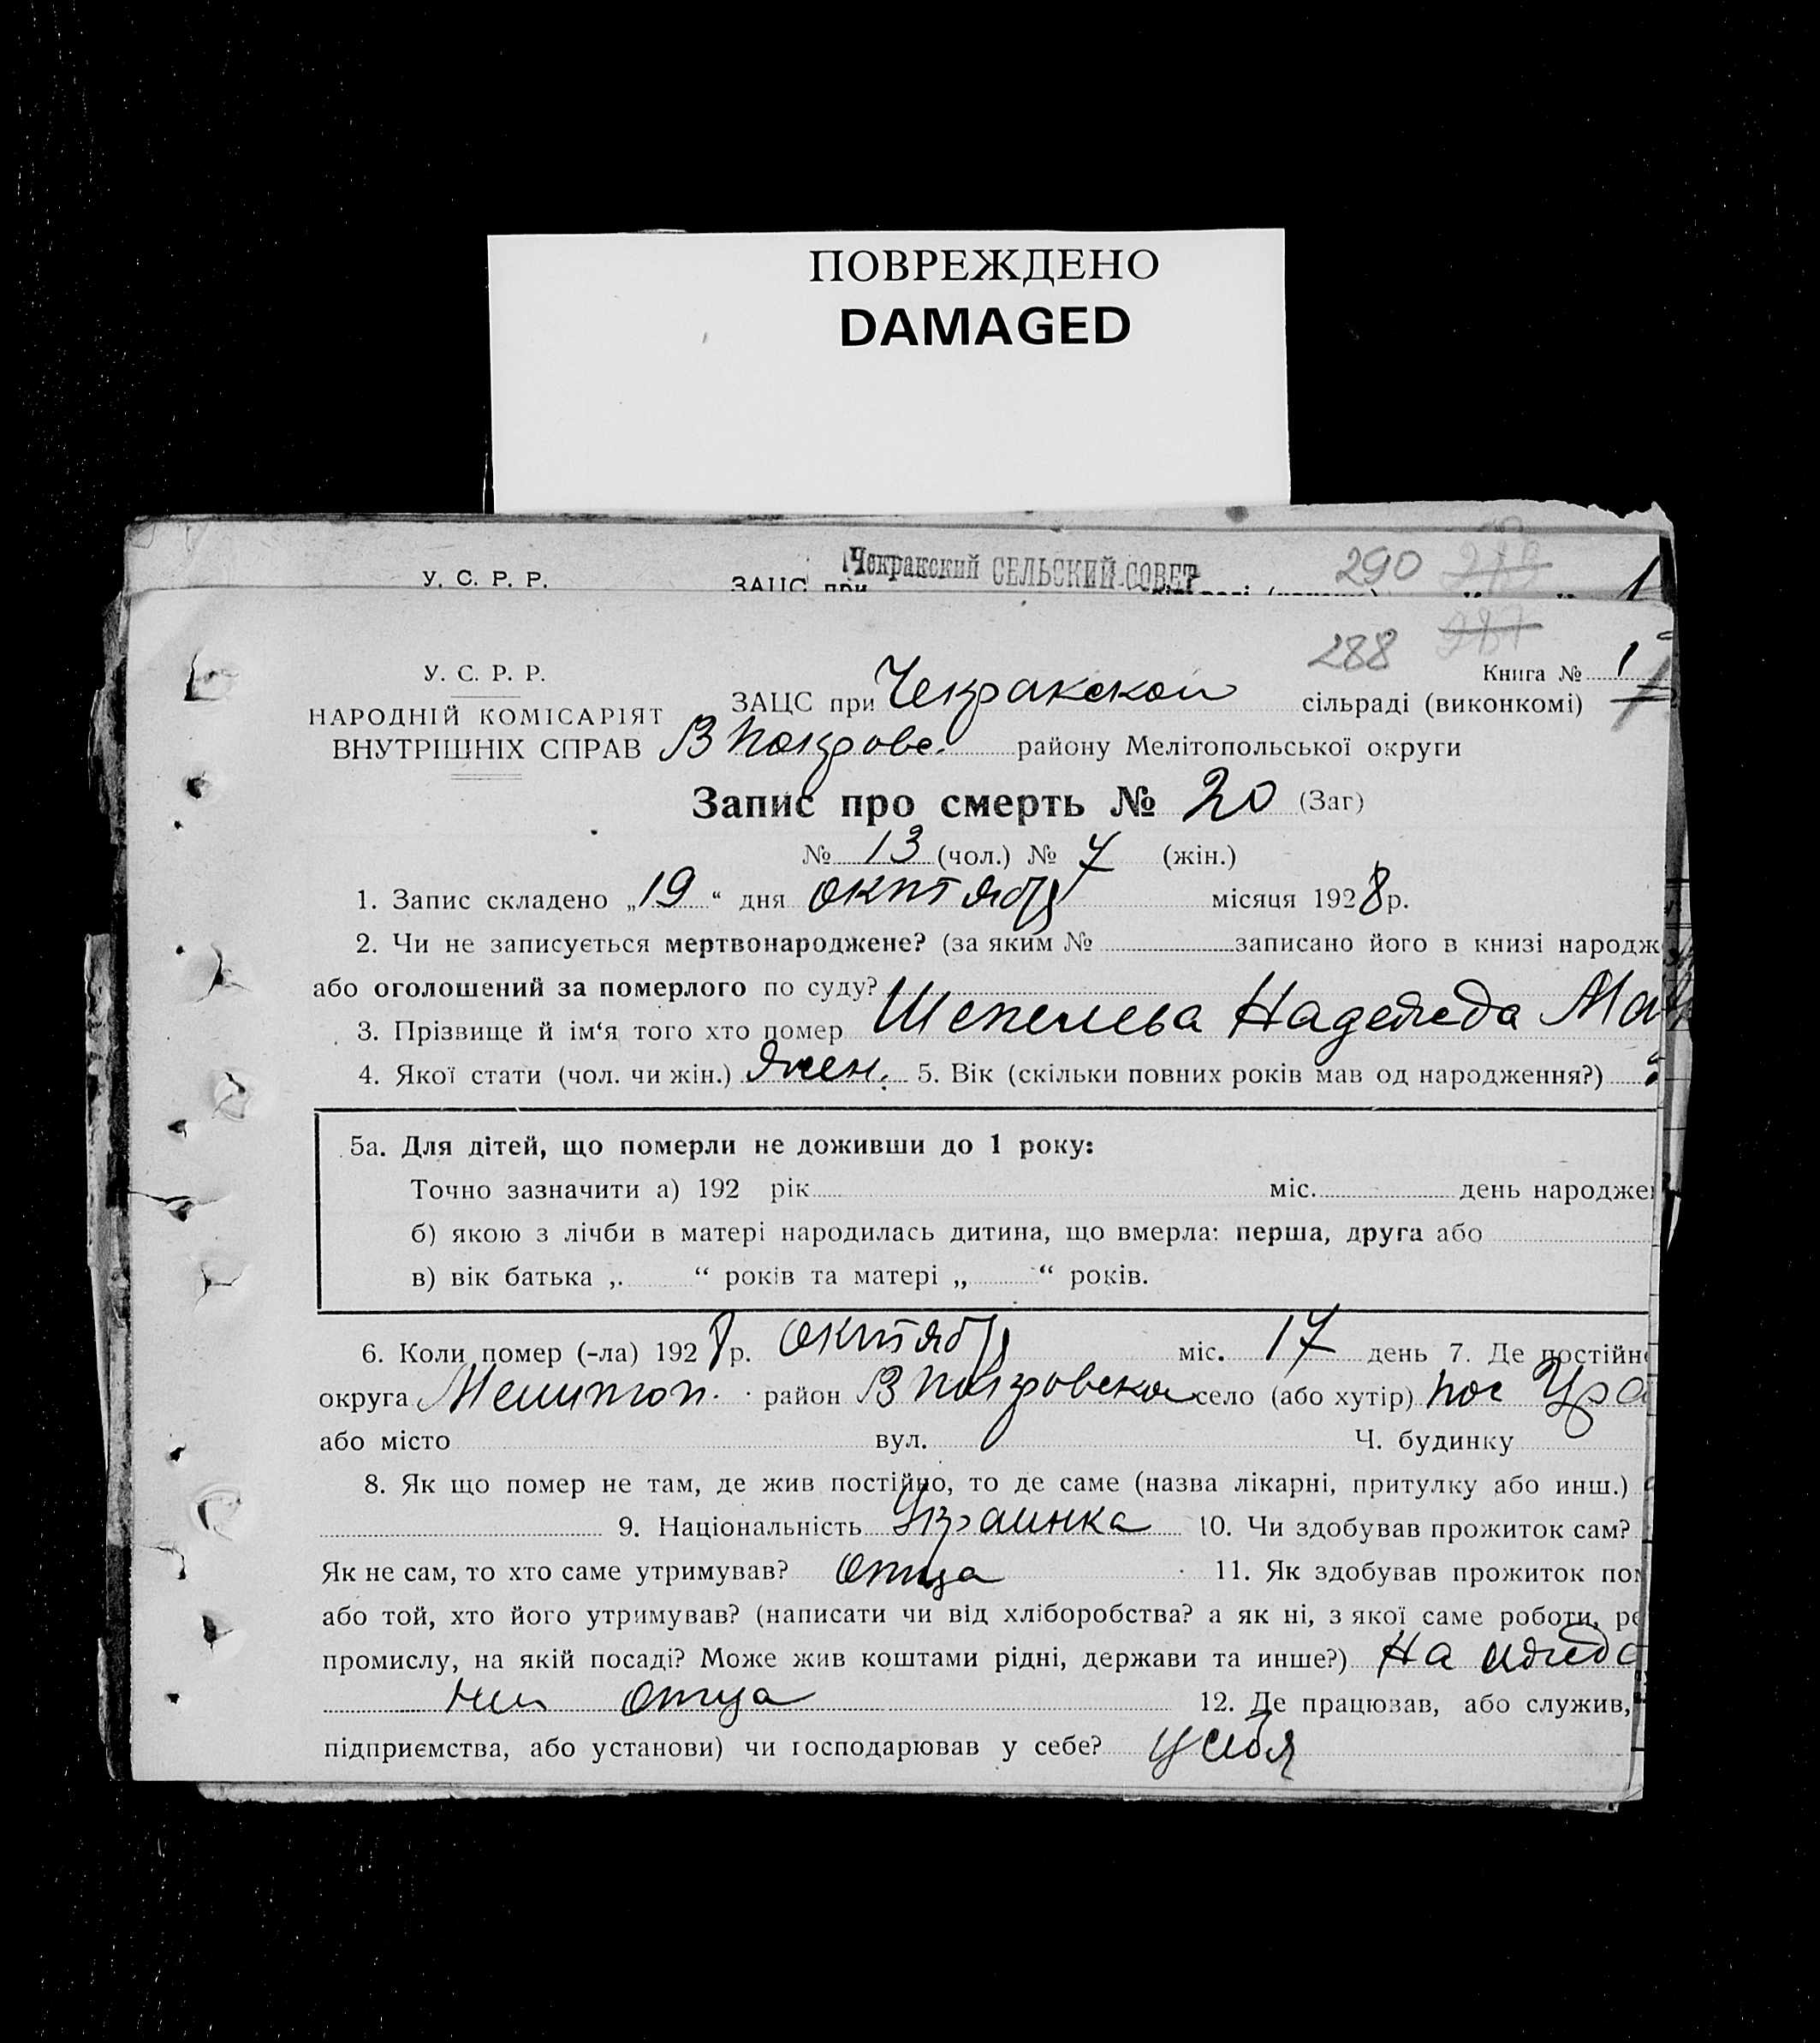 ПОВРЕЖДЕНО
DAMAGED
У. С. Р. Р. ЗАЦС при Чекракский СЕЛЬСКИЙ СОВЕТ 290 1
288 287
У. С. Р. Р. Книга № 1
ЗАЦС при Чекракской сільраді (виконкомі)
НАРОДНІЙ КОМІСАРІЯТ
ВНУТРІШНІХ СПРАВ В Покровс. району Мелітопольської округи
Запис про смерть № 20 (Заг)
№ 13 (чол.) № 7 (жін.)
1. Запис складено „19“ дня октября місяця 1928 р.
2. Чи не записується мертвонароджене? (за яким № записано його в книзі народж
або оголошений за померлого по суду?
3. Прізвище й ім‘я того хто помер Шепелева Надежда
4. Якої стати (чол. чи жін.) жен. 5. Вік (скільки повних років мав од народження?)
5а. Для дітей, що померли не доживши до 1 року:
Точно зазначити а) 192 рік міс. день народже
б) якою з лічби в матері народилась дитина, що вмерла: перша, друга або
в) вік батька „ “ років та матері „ “ років.
6. Коли помер (-ла) 1928 р. октября міс. 17 день 7. Де постійн
округа Мелитоп. район В Покровский село (або хутір) пос
або місто вул. Ч. будинку
8. Як що помер не там, де жив постійно, то де саме (назва лікарні, притулку або инш.)
9. Національність Украинка 10. Чи здобував прожиток сам?
Як не сам, то хто саме утримував? отца 11. Як здобував прожиток пом
або той, хто його утримував? (написати чи від хліборобства? а як ні, з якої саме роботи, ре
промислу, на якій посаді? Може жив коштами рідні, держави та инше?) На ижде
нии отца 12. Де працював, або служив,
підприємства, або установи) чи господарював у себе? у себя